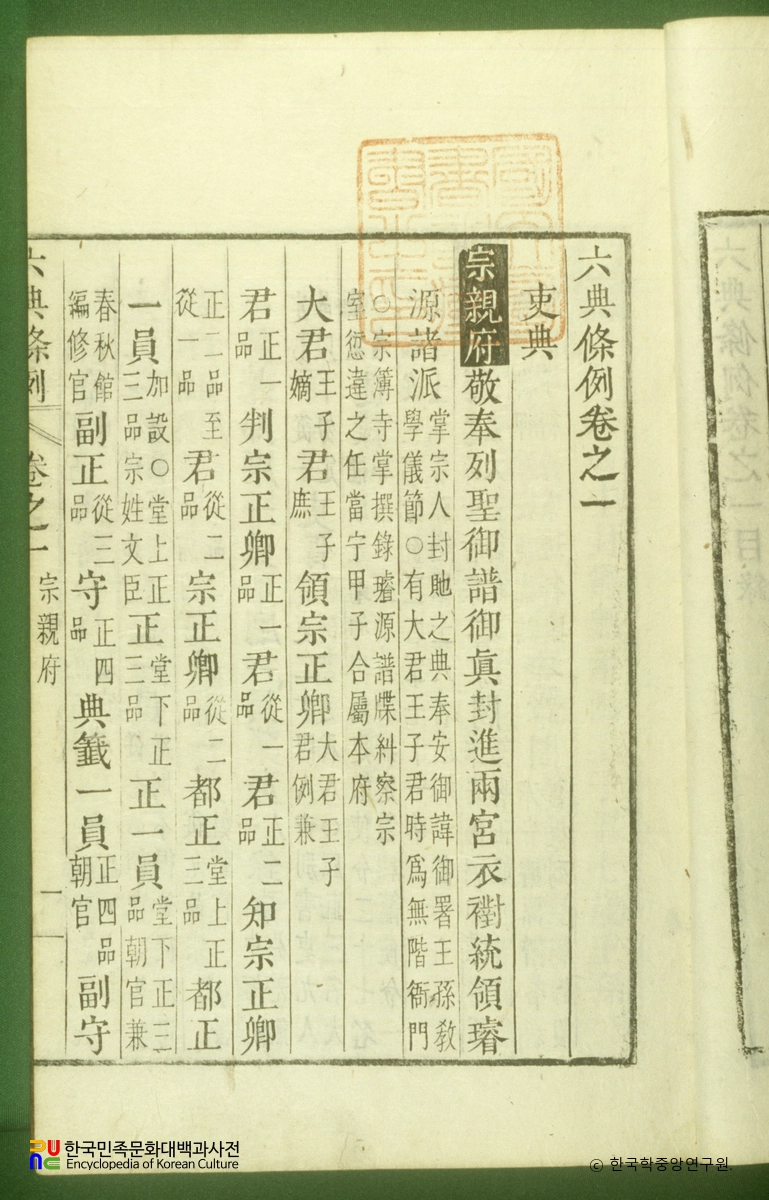 六典條例卷之一
吏典
宗親府敬奉列聖御譜御眞封進兩宮衣襨統領璿
源諸派掌宗人封貤之典奉安御諱御署王孫敎
學儀節○有大君王子君時爲無階衙門
○宗簿寺掌撰錄璿源譜牒糾察宗
室愆違之任當宁甲子合屬本府
大君王子嫡君王子庶領宗正卿大君王子君例兼
君正一品判宗正卿正一品君從一品君正二品知宗正卿
正二品至從一品君從二品宗正卿從二品都正堂上正三品都正
一員加設○堂上正三品宗姓文臣正堂下正三品正一員堂下正三品朝官兼
春秋館編修官副正從三品守正四品典籤一員正四品朝官副守
六典條例 卷之一 宗親府 一
한국민족문화대백과사전
Encyclopedia of Korean Culture
ⓒ 한국학중앙연구원